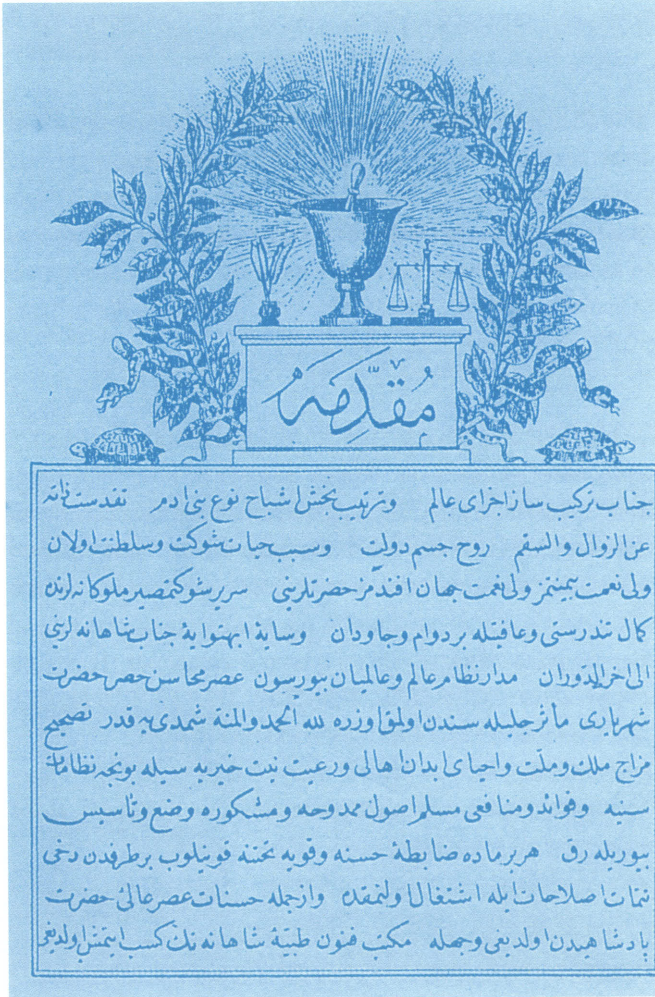 مُقَدِّمَه
جناب ترکیب ساز اجزای عالم وترتیب بخش اشباح نوع بنی ادم تقدست ذاته
عن الزوال والسقم روح جسم دولت وسبب حیات شوکت وسلطنت اولان
ولی نعمت بیمنتمز ولی نعمت جهان افندمز حضرتلرینی سریر شوکتمصیر ملوکانه لرنده
کمال تندرستی وعافیتله بردوام وجاودان وسایهٔ ابهتوایهٔ جناب شاهانه لرینی
الی اخرالدوران مدار نظام عالم وعالمیان بیورسون عصر محاسن حصر حضرت
شهریاری مأثر جلیله سندن اولمق اوزره لله الحمد والمنة شمدی یه قدر تصحیح
مزاج ملك وملت واحیای ابدان اهالی ورعیت نیت خیریه سیله بونجه نظامات
سنیه وفوائد ومنافعی مسلم اصول ممدوحه ومشکوره وضع وتأسیس
بیوریله رق هربر ماده ضابطهٔ حسنه وقویه تحتنه قونیلوب برطرفدن دخی
تتمات اصلاحات ایله اشتغال اولنمقده وازجمله حسنات عصر عالئ حضرت
پادشاهیدن اولدیغی وجهله مکتب فنون طبیهٔ شاهانه نك کسب ایتمش اولدیغی